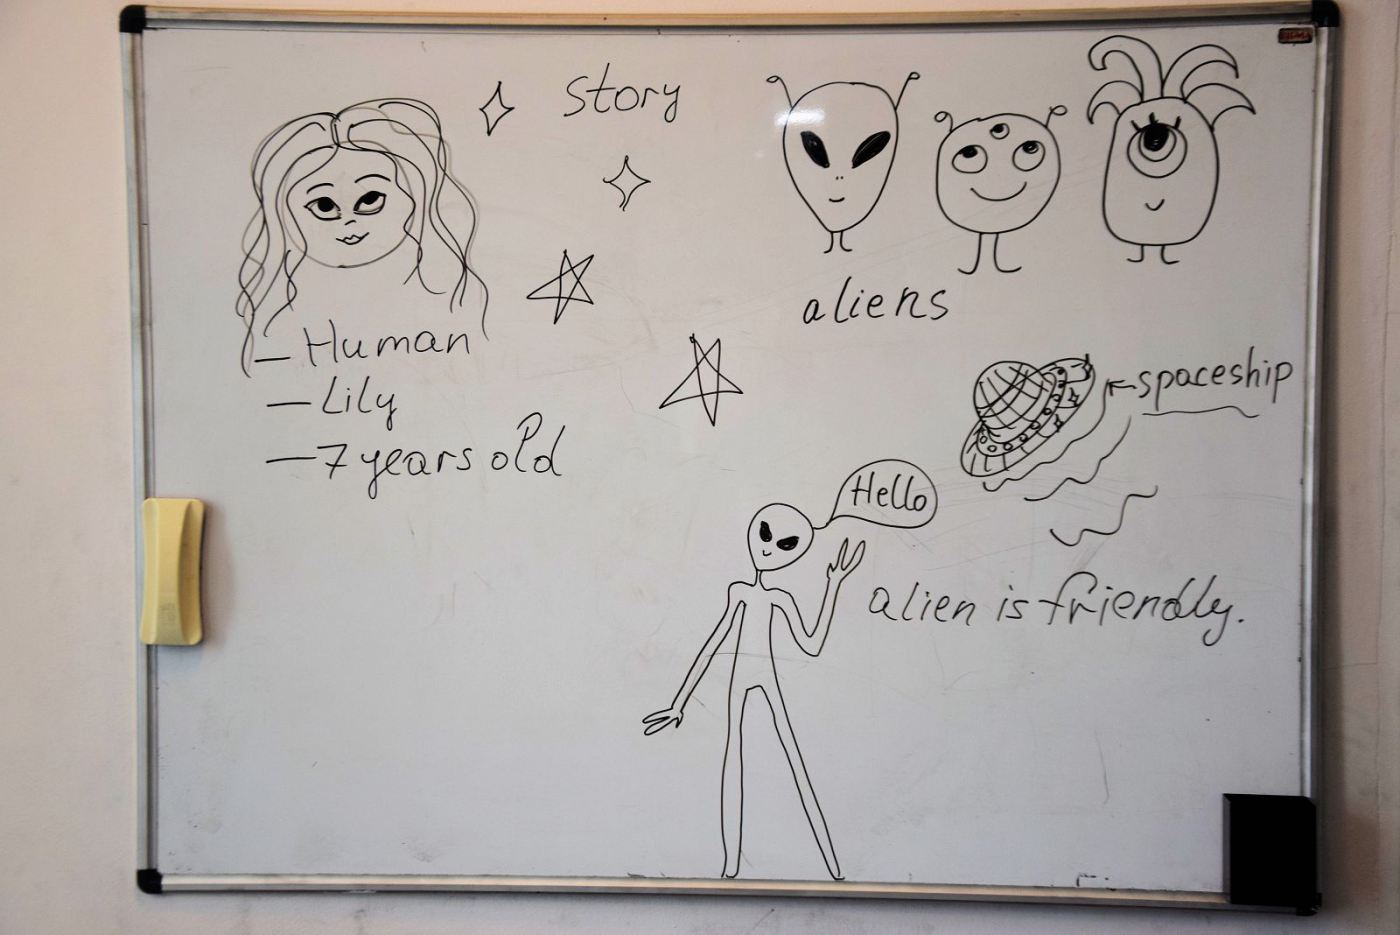 Story
— Human
— Lily
— 7 years old
aliens
spaceship
Hello
alien is friendly.